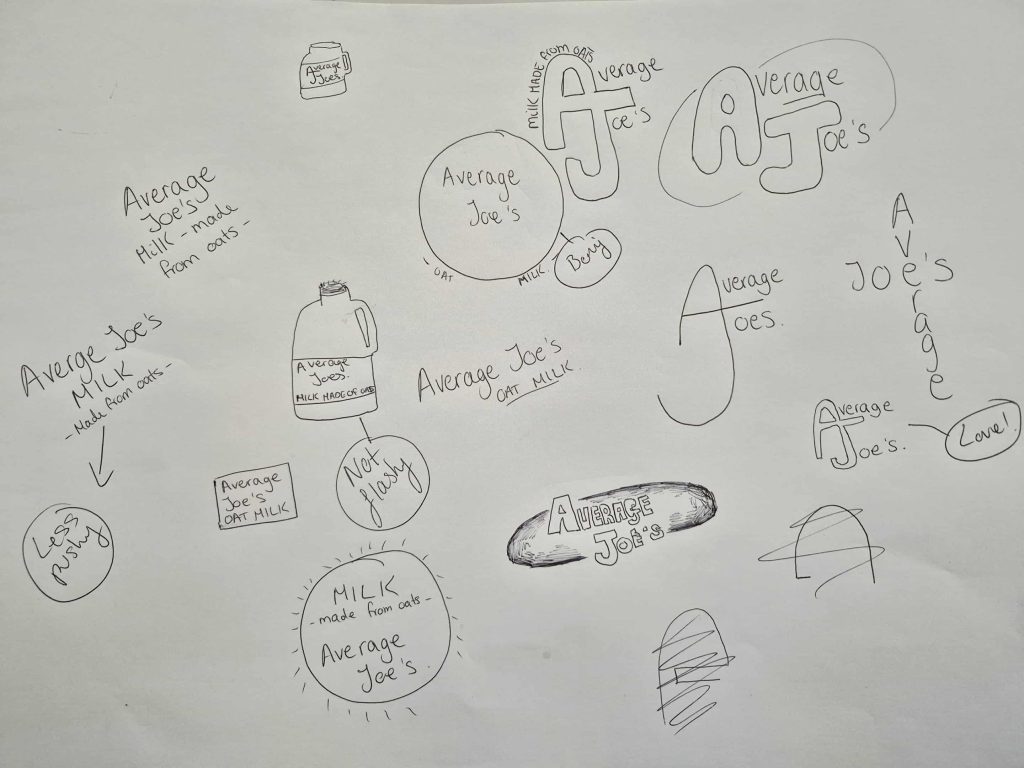 Average
Joes
MILK MADE from OATS
Average
Joe's
Average
Joe's
Average
Joe's
OAT MILK
Average
Joe's
Milk - made
from oats -
A
v
Joe's
r
a
g
e
Average
Joes.
Averge Joe's
MILK
- Made from oats -
Average
Joes.
MILK MADE OF OATS
Average Joe's
OAT MILK.
Average
Joe's.
Love!
Average
Joe's
OAT MILK
Not
flashy
AVERAGE
JOE'S
Less
pushy
MILK
- made from oats -
Average
Joe's.